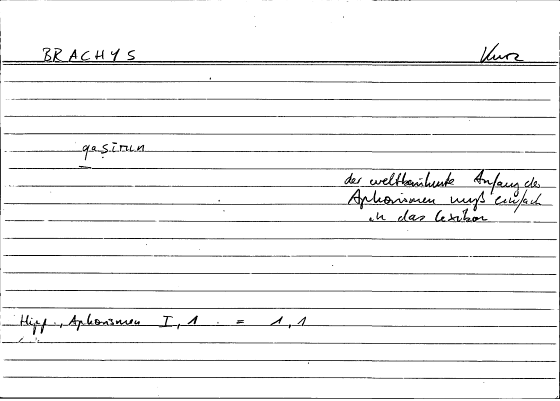 BRACHYS Kurz
qaṣīrun
der weltberühmte Anfang der
Aphorismen muß einfach
in das Lexikon
Hipp., Aphorismen I, 1 . = 1, 1